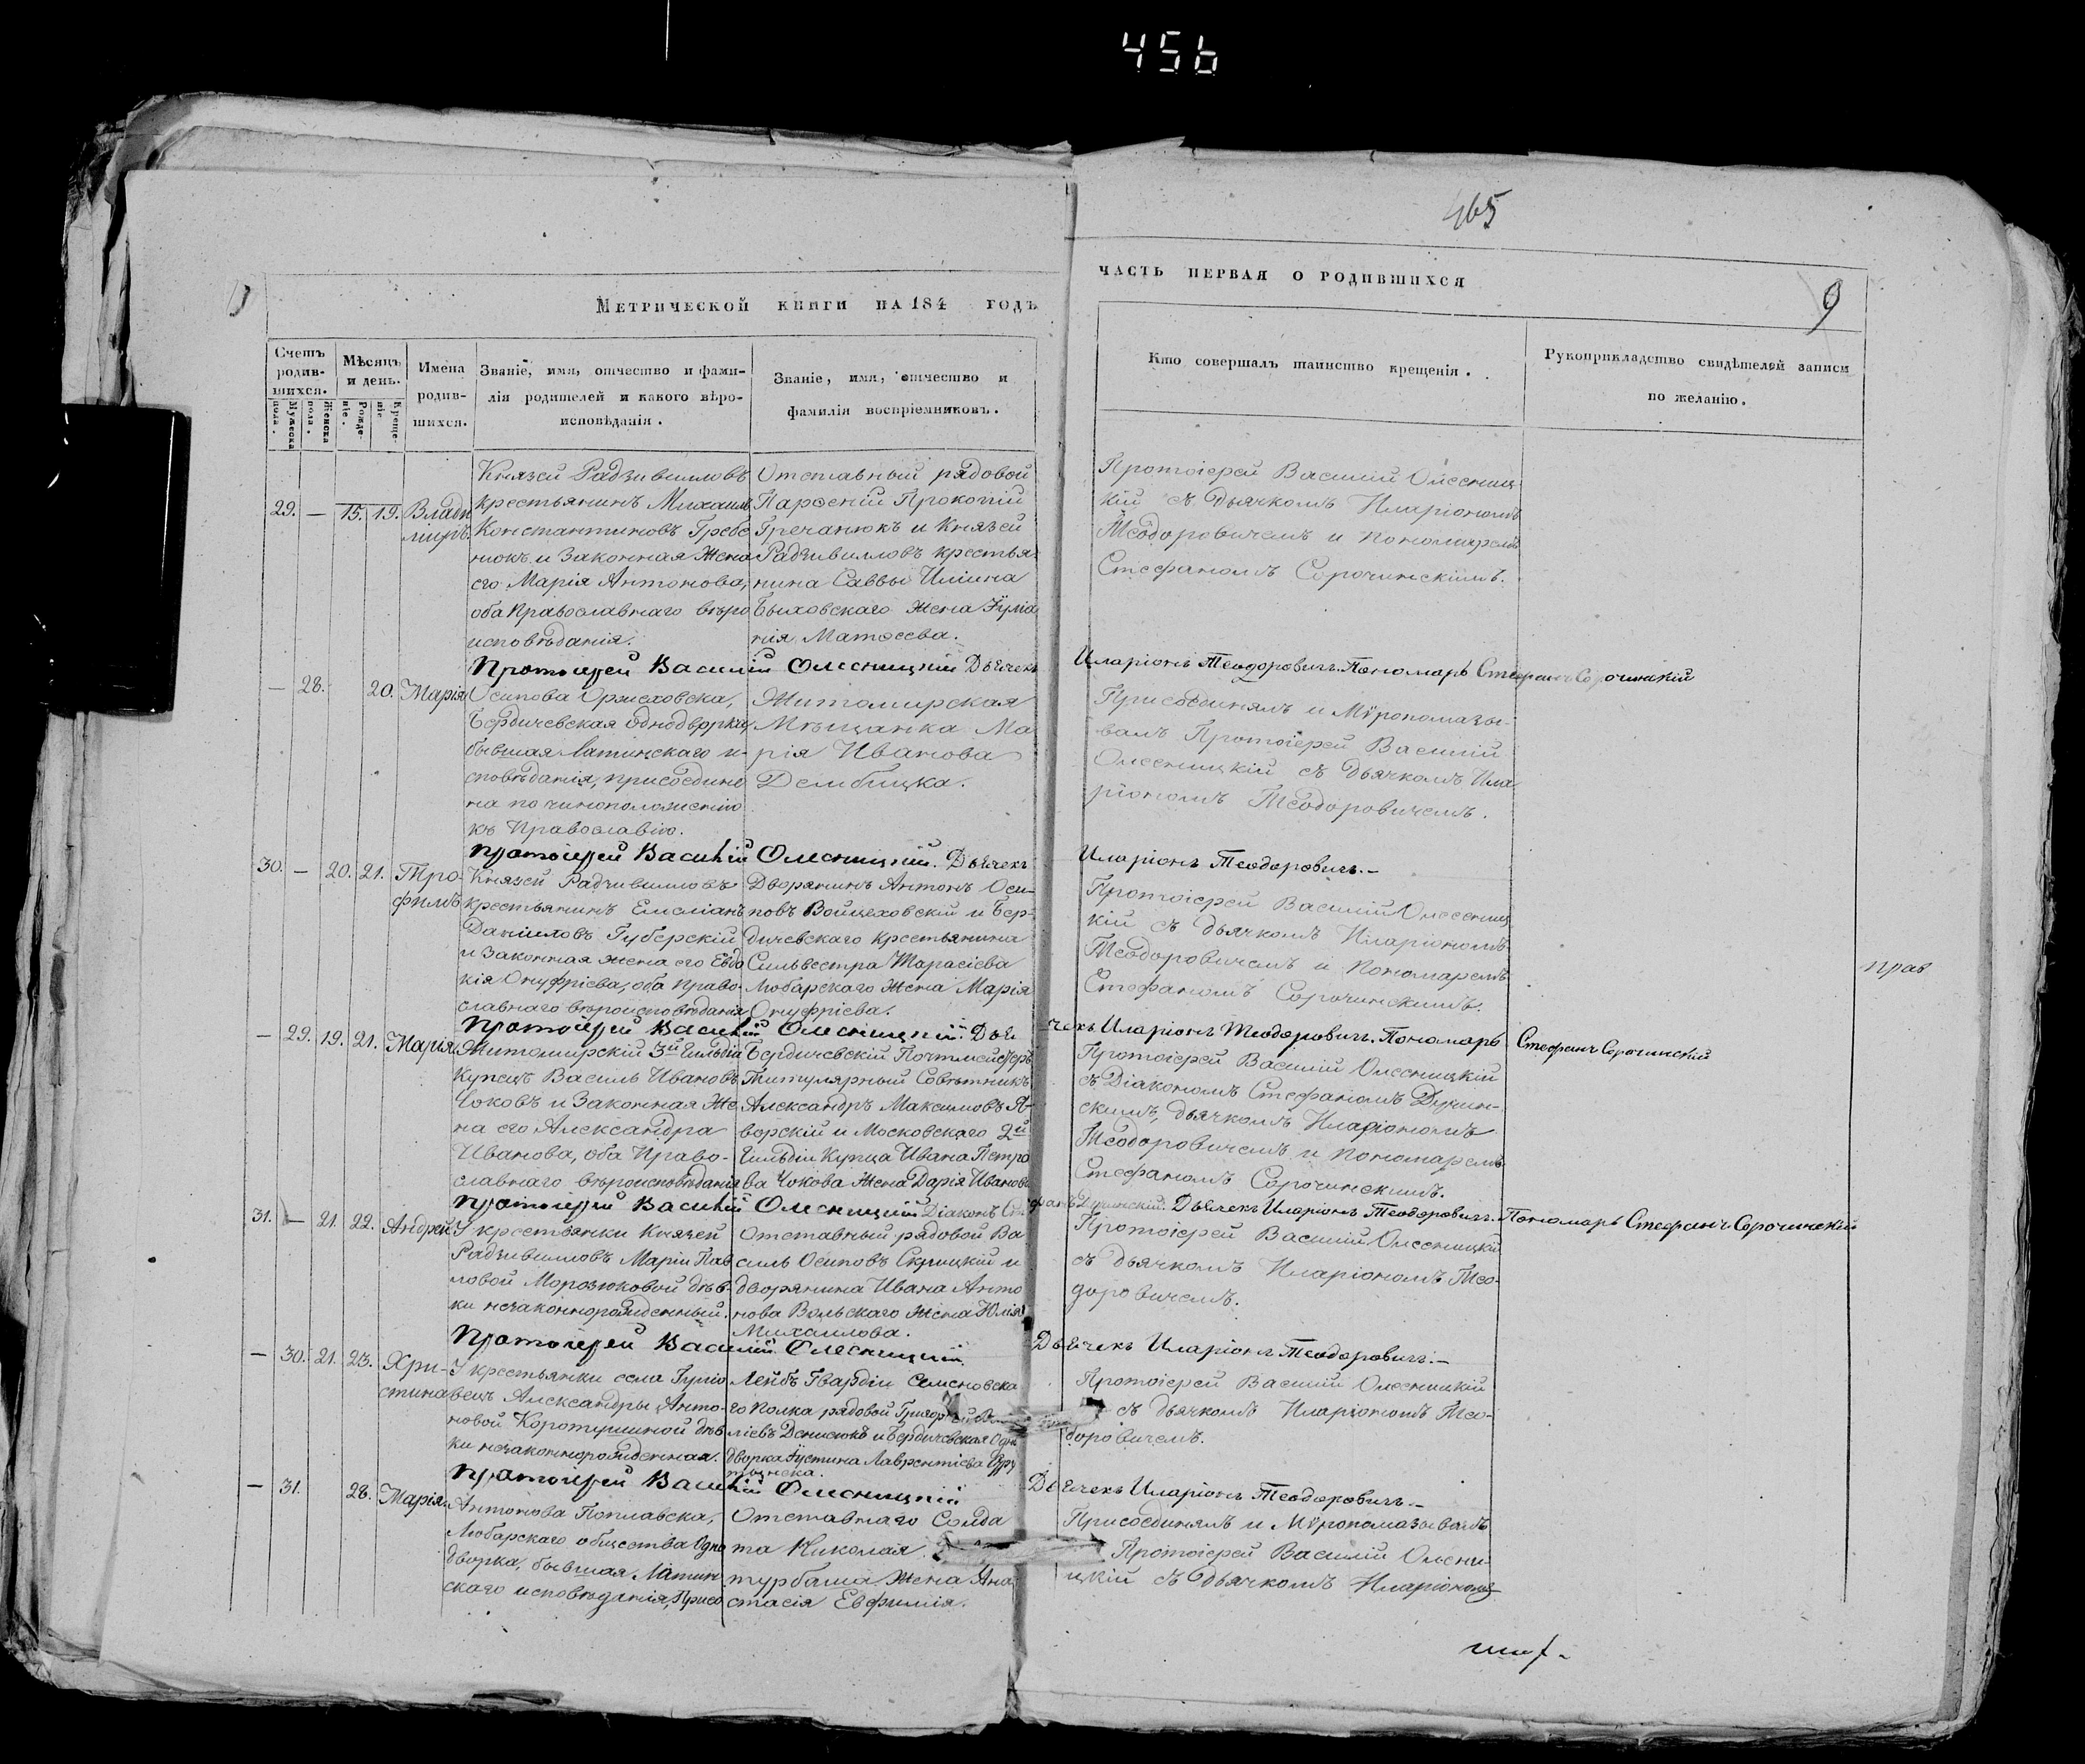 456
465
9
Метрической книги на 184 годъ
часть первая о родившихся
Счетъ родив-шихся.
Мужеска пола.
Женска пола.
Мѣсяцъ и день.
Рожде-ніе.
Креще-ніе
Имена родив-шихся.
Званіе, имя, отчество и фами-
лія родителей и какого вѣро-
исповѣданія.
Званіе, имя, отчество и
фамилія воспріемниковъ.
Кто совершалъ таинство крещенія.
Рукоприкладство свидѣтелей записи
по желанію.
29. — 15. 19. Влади
міръ.
Князей Радзивилловъ
крестьянинъ Михаилъ
Константиновъ Гребе
нюкъ и Законная Жена
его Марія Антонова,
оба Православнаго вѣро
исповѣданія.
Отставный рядовой
Парѳеній Прокопій
Гречанюкъ и Князей
Радзивилловъ крестья
нина Саввы Иліина
Быховскаго жена Іуліа
нія Матѳеева.
Протоіерей Василій Олесниц
кій съ дьячкомъ Иларіономъ
Теодоровичемъ и пономаремъ
Стефаномъ Сорочинскимъ.
Протоіерей Василій Олесницкій Дьячекъ Иларіонъ Теодоровичъ. Пономарь Стефанъ Сорочинскій
— 28. 20. Марія
Осипова Оржеховска,
Бердичевская однодворка,
бывшая Латинскаго и-
сповѣданія, присоедине
на по чиноположенію
къ Православію.
Житомирская
Мѣщанка Ма
рія Иванова
Дембицка.
Присоединялъ и Мѵропомазы-
валъ Протоіерей Василій
Олесницкій съ дьячкомъ Ила
ріономъ Теодоровичемъ.
Протоіерей Василій Олесницкій. Дьячекъ Иларіонъ Теодоровичъ.—
30. — 20. 21. Тро-
фимъ
Князей Радзивилловъ
крестьянинъ Емеліанъ
Даніиловъ Губерскій
и Законная жена его Евдо
кія Онуфріева, оба Право-
славнаго вѣроисповѣданія
Дворянинъ Антонъ Оси-
повъ Войцеховскій и Бер-
дичевскаго крестьянина
Сильвестра Тарасіева
Любарскаго жена Марія
Онуфріева.
Протоіерей Василій Олесниц
кій съ дьячкомъ Иларіономъ
Теодоровичемъ и пономаремъ
Стефаномъ Сорочинскимъ.
прав
Протоіерей Василій Олесницкій. Дьячекъ Иларіонъ Теодоровичъ. Пономарь Стефанъ Сорочинскій
— 29. 19. 21. Марія.
Житомирскій 3й Гильдіи
Купецъ Василь Ивановъ
Чоковъ и Законная Же
на его Александра
Иванова, оба Право-
славнаго вѣроисповѣданія
Бердичевскій Почтмейстеръ
Титулярный Совѣтникъ
Александръ Максимовъ Я-
ворскій и Московскаго 2й
Гильдіи Купца Ивана Петро
ва Чокова жена Дарія Иванова
Протоіерей Василій Олесницкій
съ Діакономъ Стефаномъ Дучин-
скимъ, дьячкомъ Иларіономъ
Теодоровичемъ и пономаремъ
Стефаномъ Сорочинскимъ.
Протоіерей Василій Олесницкій Діаконъ Стефанъ Дучинскій. Дьячекъ Иларіонъ Теодоровичъ. Пономарь Стефанъ Сорочинскій
31. — 21. 22. Андрей
У крестьянки Князей
Радзивилловъ Маріи Пав
ловой Морозюковой дѣв-
ки незаконнорожденный.
Отставный рядовой Ва
силь Осиповъ Скрицкій и
дворянина Ивана Анто
нова Вольскаго жена Юлія
Михаилова.
Протоіерей Василій Олесницкій
съ дьячкомъ Иларіономъ Тео-
доровичемъ.
Протоіерей Василій Олесницкій Дьячекъ Иларіонъ Теодоровичъ.—
— 30. 21. 23. Хри-
стина
У крестьянки села Гуліо
вецъ Александры Анто-
новой Коротушиной дѣв
ки незаконнорожденная.
Лейбъ Гвардіи Семеновска
го полка рядовой Григорій
ліевъ Денисюкъ и Бердичевская Одно
дворка Іустина Лаврентіева
Протоіерей Василій Олесницкій
съ дьячкомъ Иларіономъ Тео-
доровичемъ.
Протоіерей Василій Олесницкій Дьячекъ Иларіонъ Теодоровичъ.—
— 31. 28. Марія
Антонова Поплавска,
Любарскаго общества Одно
дворка, бывшая Латин
скаго исповѣданія, Присо
Отставнаго Солда
та Николая
турбаша жена Ана
стасія Евфимія.
Присоединялъ и Мѵропомазывалъ
Протоіерей Василій Олесни-
цкій съ дьячкомъ Иларіономъ